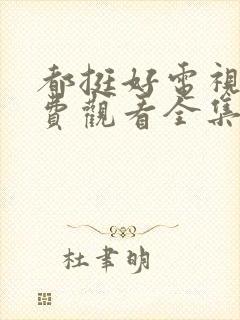 都挺好電視
費觀看全集
杜聿明